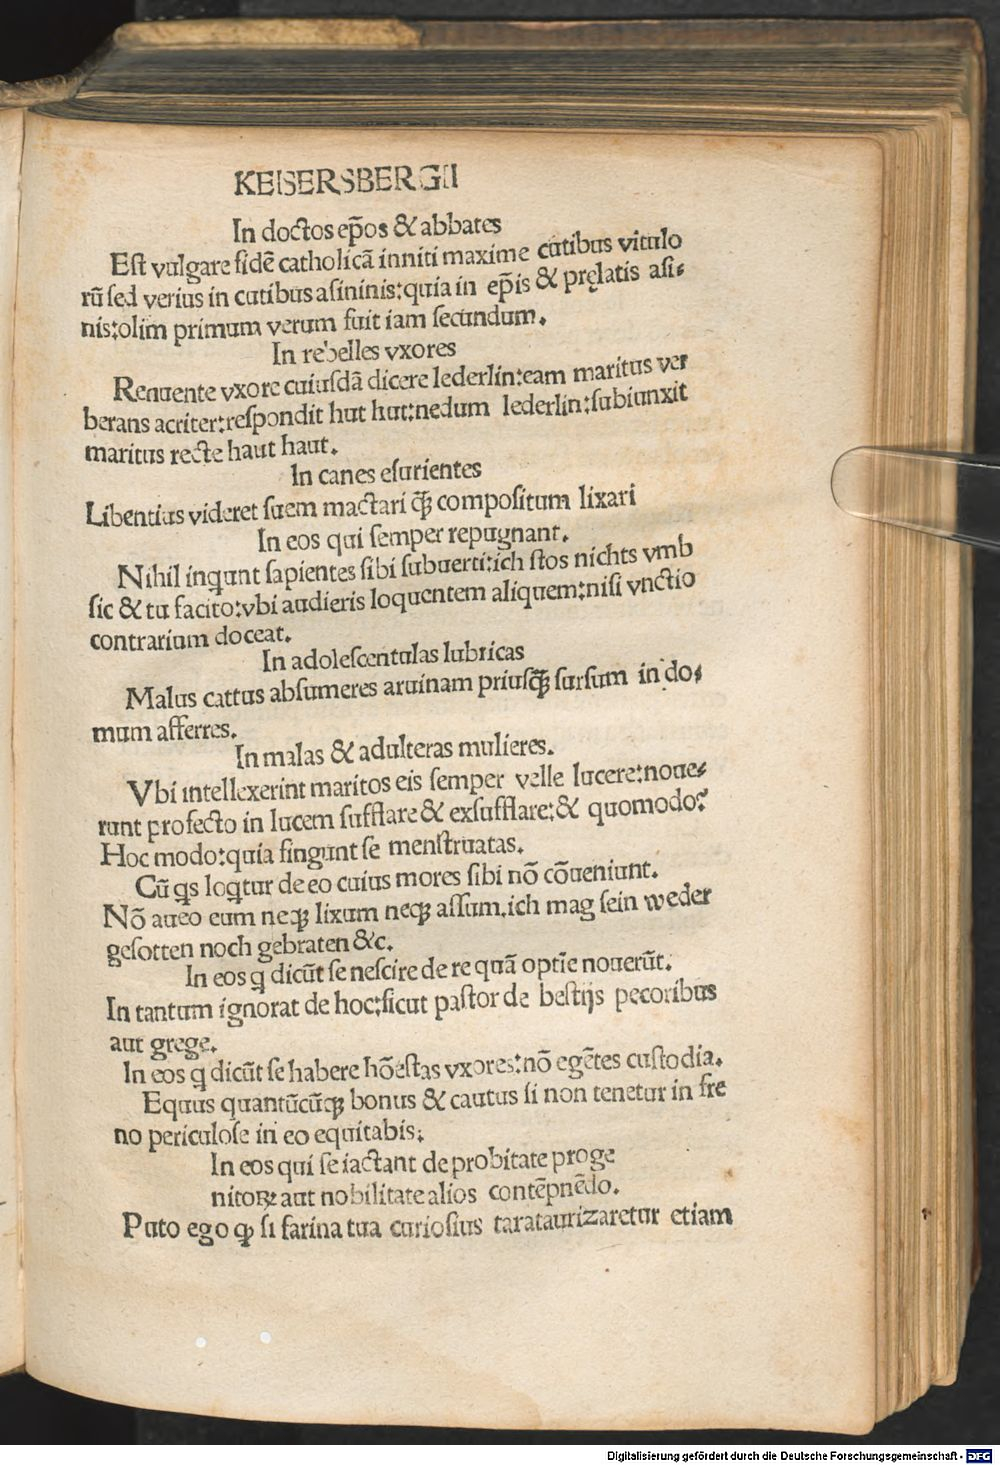 KEISERSBERGII
In doctos ep̃os & abbates
Est vulgare fidẽ catholicã inniti maxime cutibus vitulo
rũ sed verius in cutibus asininis: quia in ep̃is & pręlatis asi⸗
nis: olim primum verum fuit iam secundum.
In rebelles vxores
Renuente vxore cuiusdã dicere lederlin: eam maritus ver
berans acriter: respondit hut hut: nedum lederlin: subiunxit
maritus recte haut haut.
In canes esurientes
Libentius videret suem mactari q̃ꝫ compositum lixari
In eos qui semper repugnant.
Nihil inquunt sapientes sibi subuerti: ich stos nichts vmb
sic & tu facito: vbi audieris loquentem aliquem: nisi vnctio
contrarium doceat.
In adolescentulas lubricas
Malus cattus absumeres aruinam priusq̃ꝫ sursum in do⸗
mum afferres.
In malas & adulteras mulieres.
Vbi intellexerint maritos eis semper velle lucere: noue⸗
runt profecto in lucem sufflare & exsufflare: & quomodo?
Hoc modo: quia fingunt se menstruatas.
Cũ qs loqtur de eo cuius mores sibi nõ cõueniunt.
Nõ aueo eum neqꝫ lixum neqꝫ assum. ich mag sein weder
gesotten noch gebraten &c.
In eos q dicũt se nescire de re quã optĩe nouerũt.
In tantum ignorat de hoc: sicut pastor de bestijs pecoribus
aut grege.
In eos q dicũt se habere hõestas vxores: nõ egẽtes custodia.
Equus quantũcũqꝫ bonus & cautus si non tenetur in fre
no periculose in eo equitabis:
In eos qui se iactant de probitate proge
nitoꝝ aut nobilitate alios contẽpnẽdo.
Puto ego ꝙ si farina tua curiosius tarataurizaretur etiam
Digitalisierung gefördert durch die Deutsche Forschungsgemeinschaft - DFG